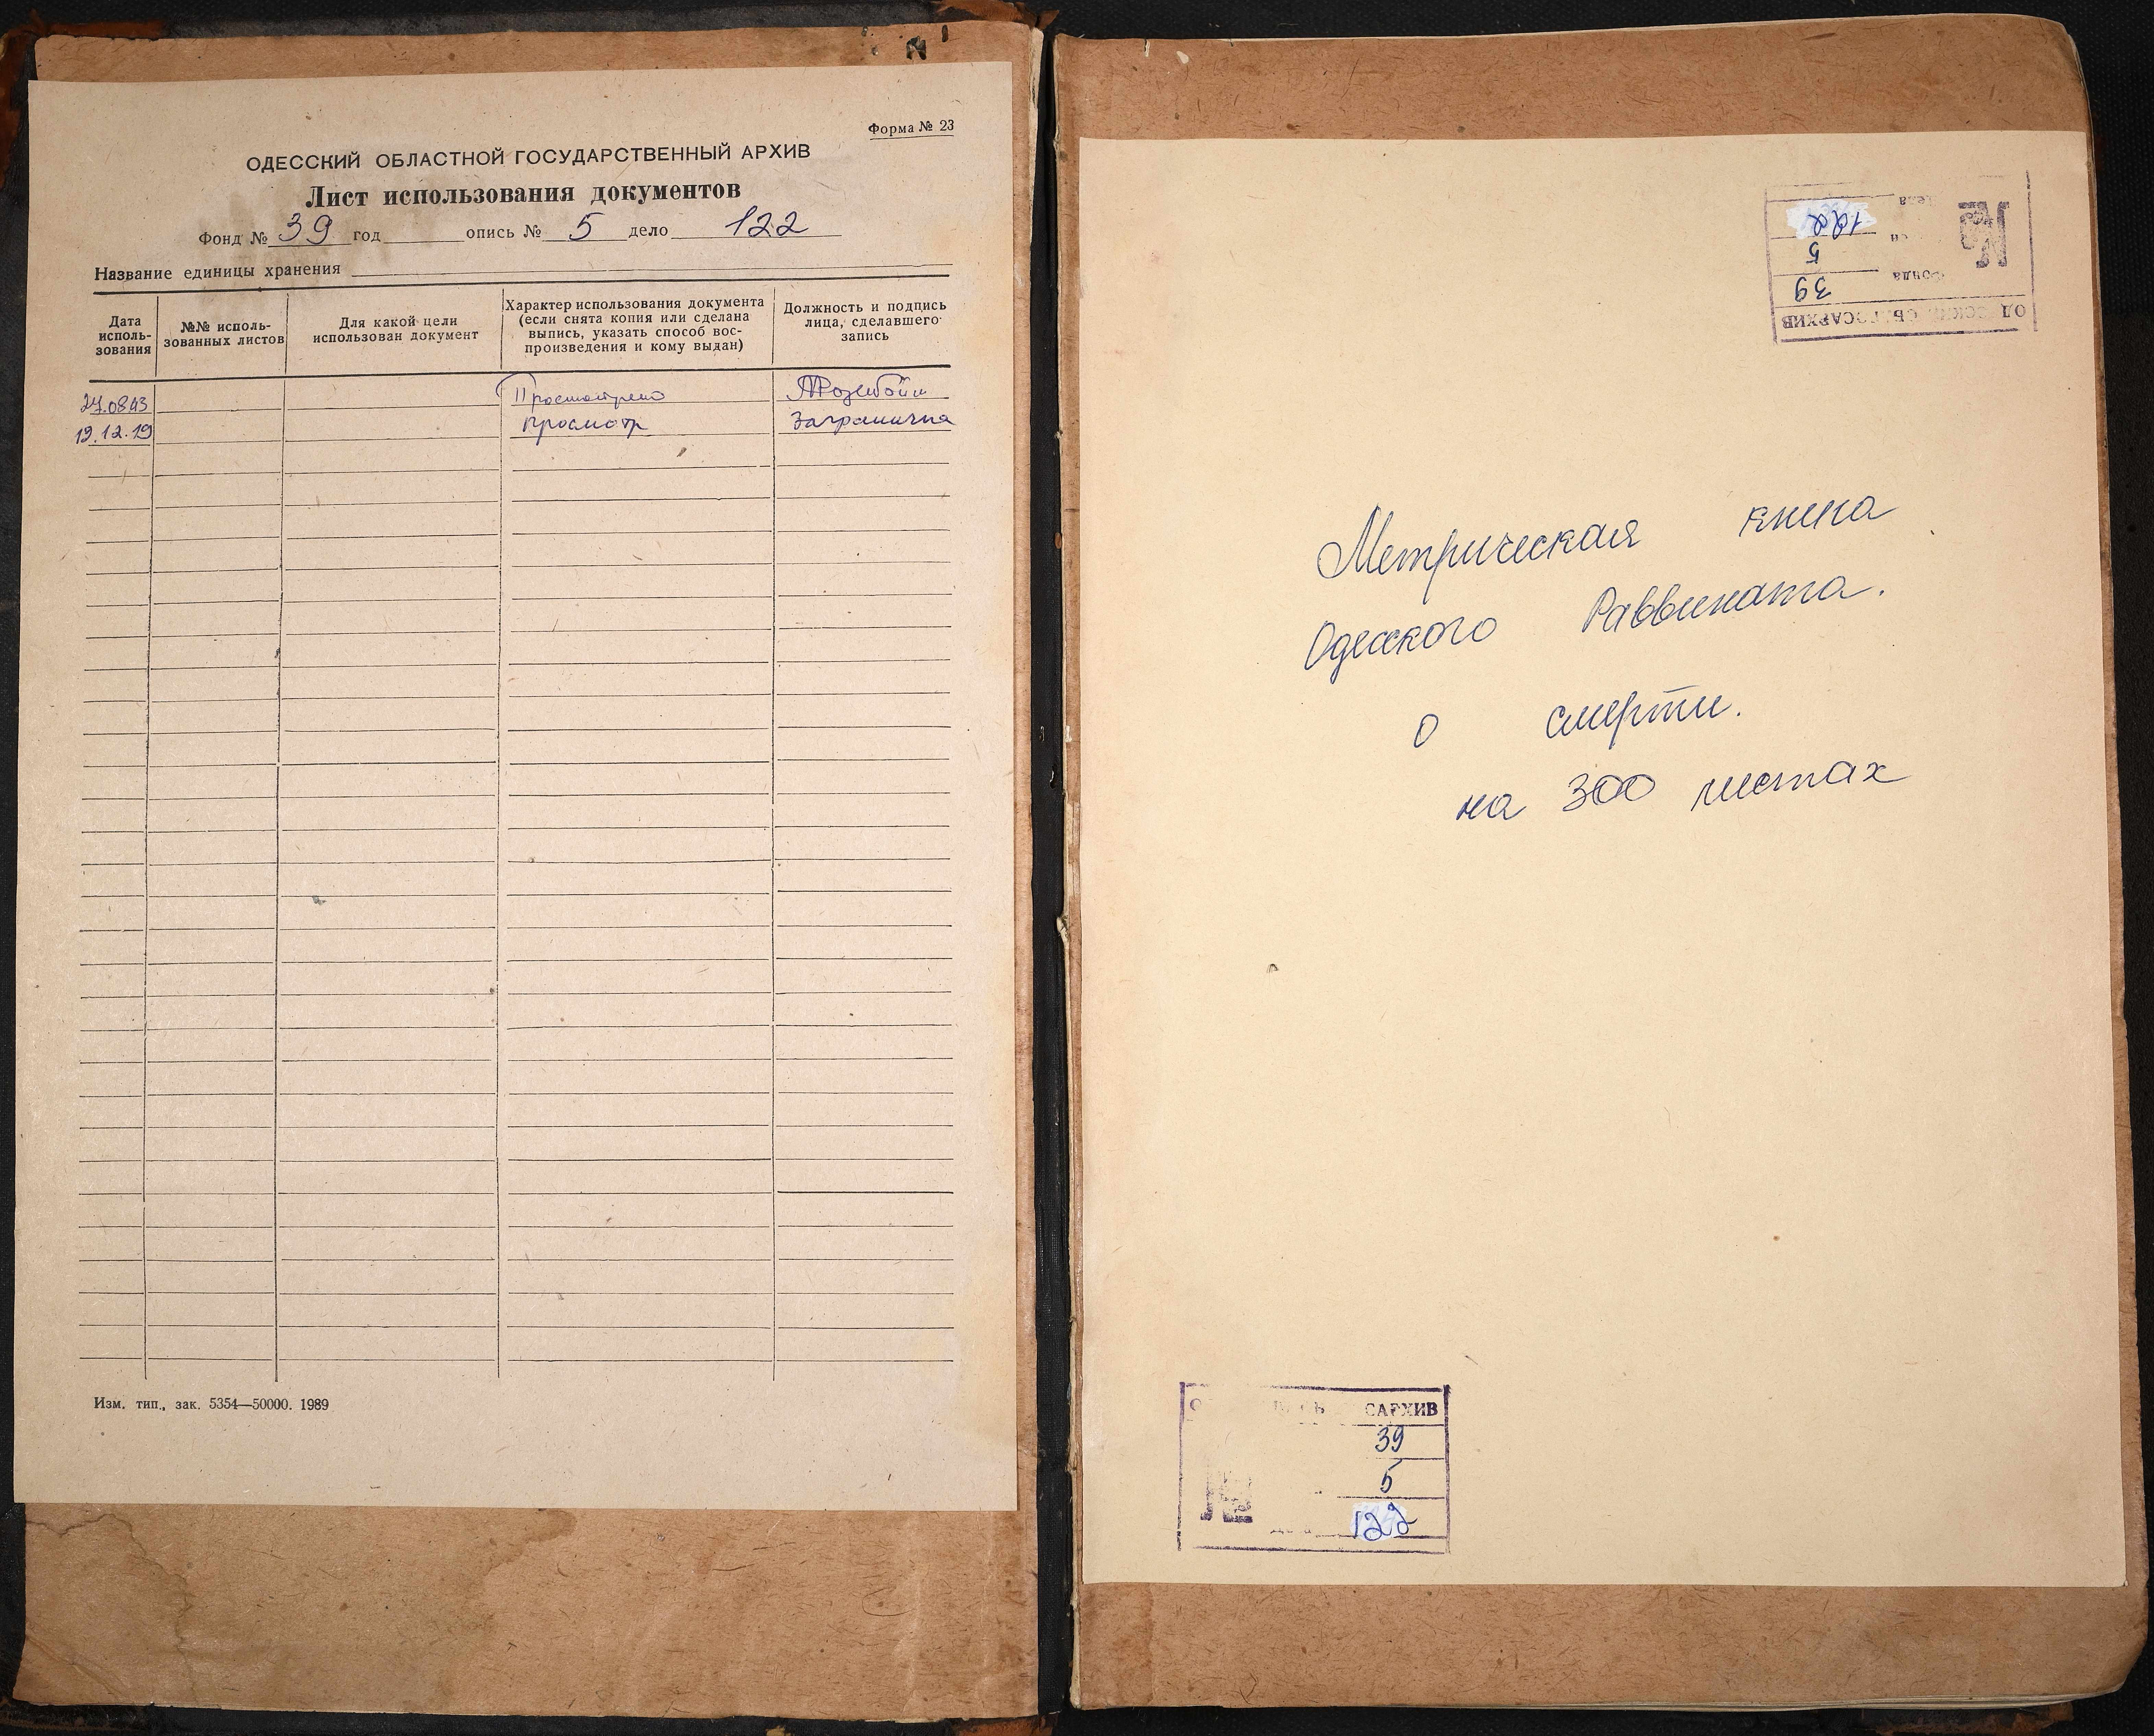 Форма № 23
ОДЕССКИЙ ОБЛАСТНОЙ ГОСУДАРСТВЕННЫЙ АРХИВ
Лист использования документов
Фонд № 39 год опись № 5 дело 122
Название единицы хранения
Дата исполь-
зования
№№ исполь-
зованных листов
Для какой цели
использован документ
Характер использования документа
(если снята копия или сделана
выпись, указать способ вос-
произведения и кому выдан)
Должность и подпись
лица, сделавшего
запись
Просмотрено
13.12.19 просмотр
Изм. тип., зак. 5354—50000. 1989
122
5
Фонда 39
Метрическая книга
Одесского Раввината.
о смерти.
на 300 листах
САРХИВ
39
5
122